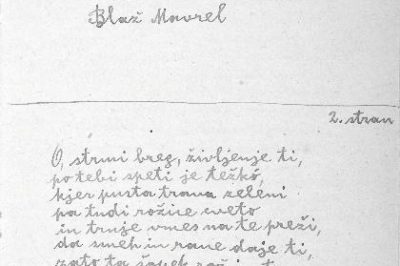 Blaž Mavrel
2. stran
O, strmi breg, življenje ti,
po tebi speti je težkó,
kjer pusta trava zeleni
pa tudi rožice cveto
in trnje vmes na te preži,
da smeh in rane daje ti,
zato ta šopek